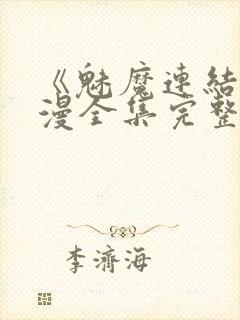 《魅魔連結
漫全集完整
李濟海